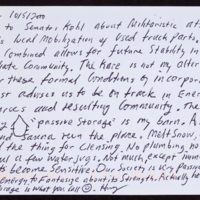 10/5/2000
to Senator Kohl about Nichtoristic att
local Mobilization of Used Truck Parts
Combined allows for future Stability in
ate Community. The hare is not my alter
these formal Conditions of incorpor
st advises us to be on track in Ener
rces and resulting Community. The
"passive Storage" is my barn. A
and Sauna run the place. Matt Snow,
d the thing for Cleansing. No plumbing no
ul a few water jugs. Not much, except
to become Sensitive, Our Society is very Passive
Energy to Fantasize about, its Strength. Actually
orage is what you call